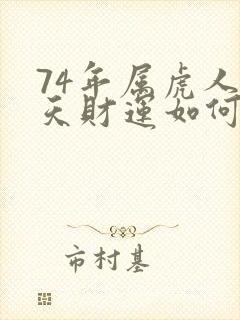 74年属虎人
天财运如何
市村基